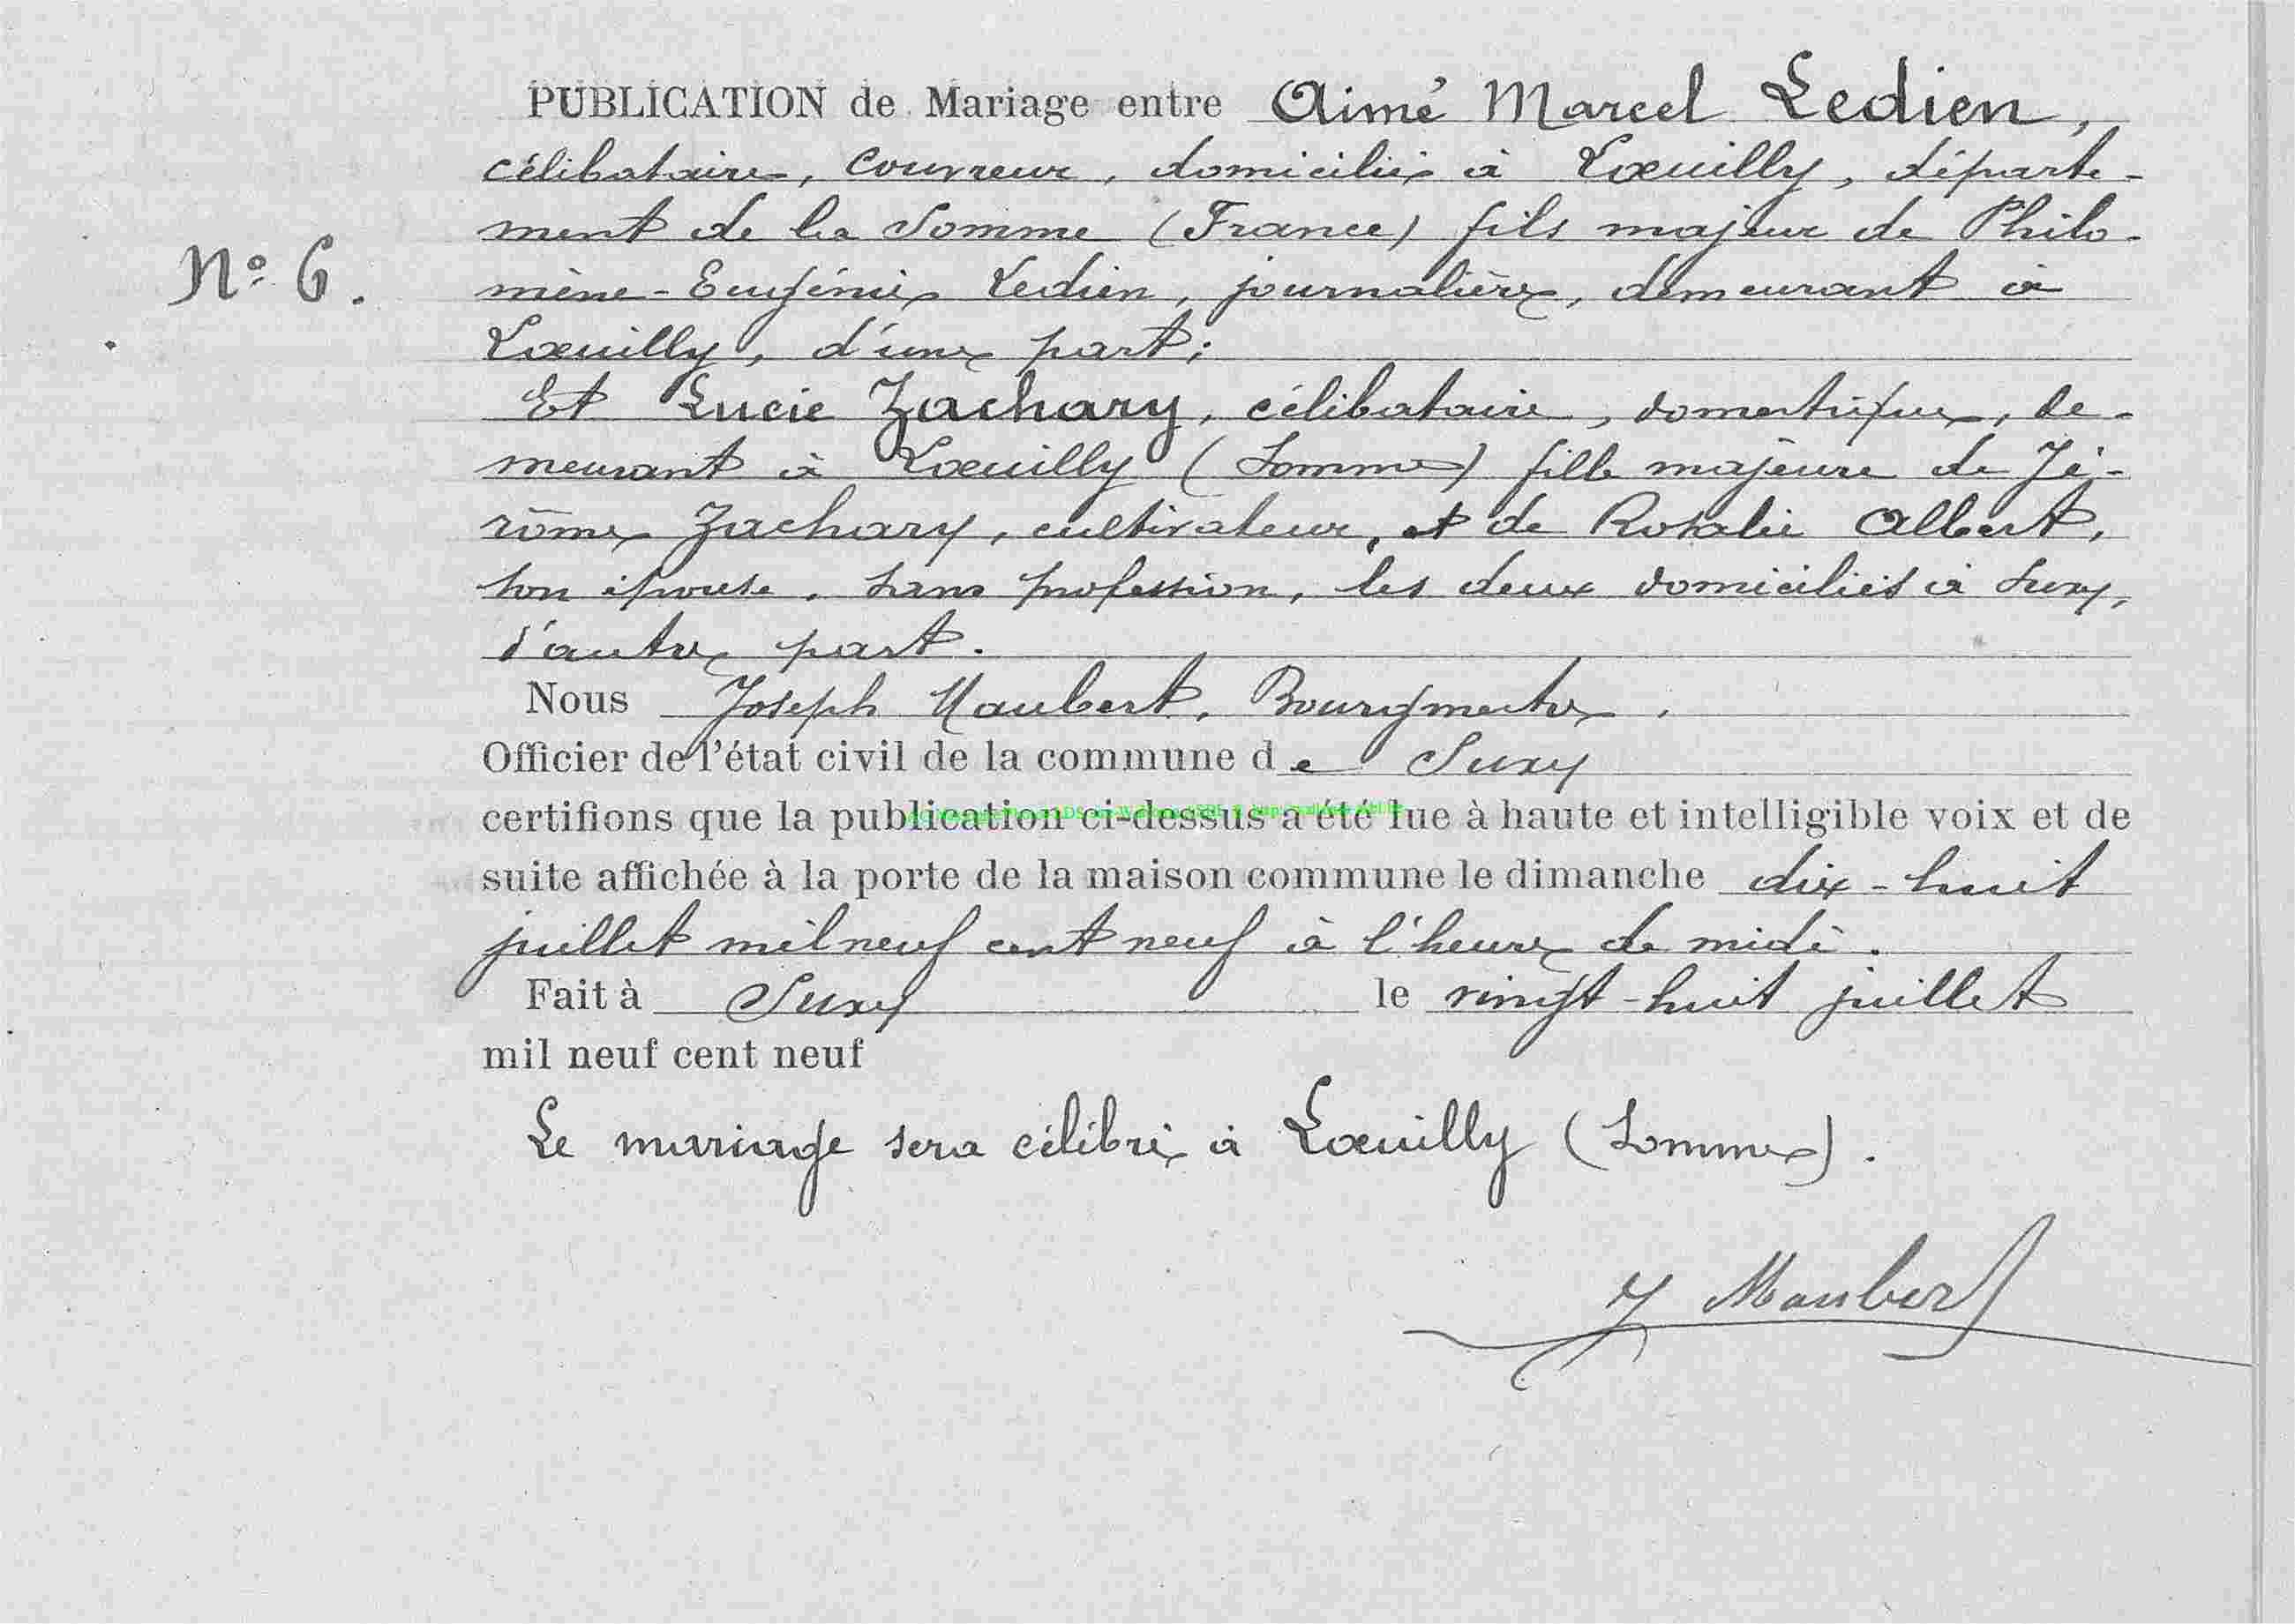 PUBLICATION de Mariage entre Aimé Marcel Ledien,
célibataire, couvreur, domicilié à Loeuilly, départe-
ment de la Somme (France) fils majeur de Philo-
N° 6.
mène-Eugénie Ledien, journalière, demeurant à
Loeuilly, d'une part;
Et Lucie Zachary, célibataire, domestique, de-
meurant à Loeuilly (Somme) fille majeure de Jé-
rôme Zachary, cultivateur, et de Rosalie Albert,
son épouse, sans profession, les deux domiciliés à Suxy,
d'autre part.
Nous Joseph Maubert, Bourgmestre,
Officier de l'état civil de la commune de Suxy
certifions que la publication ci-dessus a été lue à haute et intelligible voix et de
suite affichée à la porte de la maison commune le dimanche dix-huit
juillet mil neuf cent neuf à l'heure de midi.
Fait à Suxy le vingt-huit juillet
mil neuf cent neuf
Le mariage sera célébré à Loeuilly (Somme).
J Maubert